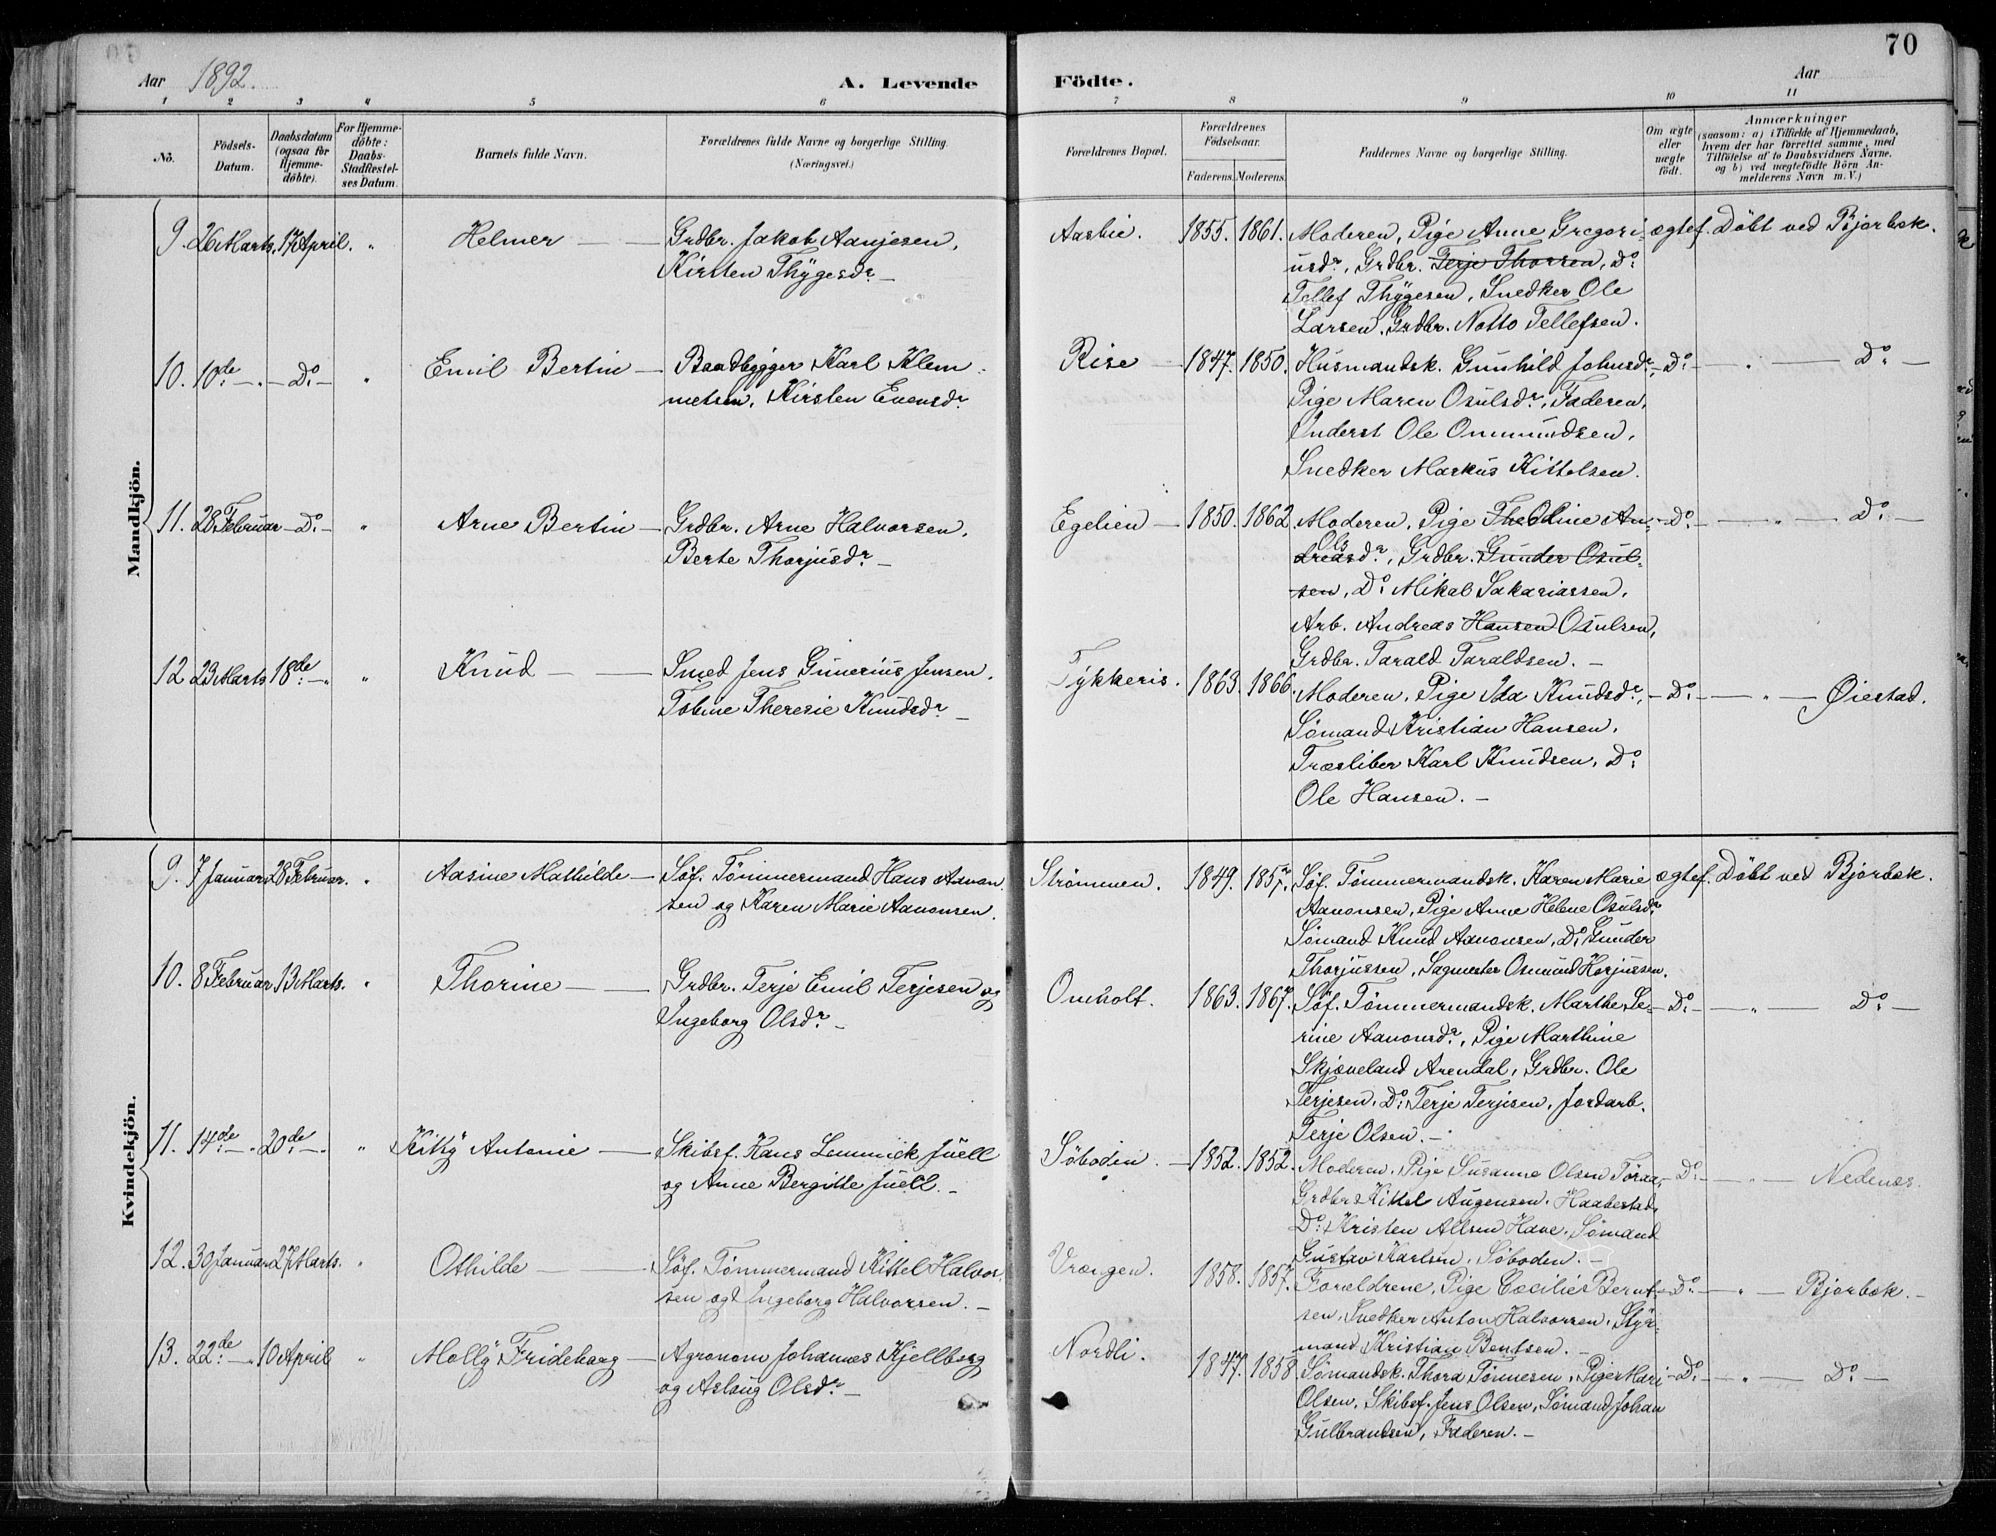 70
Aar 1892.
A. Levende Födte.
Aar
1 2 3 4 5 6 7 8 9 10 11
No.
Födsels-Datum.
Daabsdatum (ogsaa for Hjemme-döbte).
For Hjemme-döbte: Daabs-Stadfæstel-ses Datum.
Barnets fulde Navn.
Forældrenes fulde Navne og borgerlige Stilling. (Næringsvei.)
Forældrenes Bopæl.
Forældrenes Födselsaar.
Faderens. Moderens.
Faddernes Navne og borgerlige Stilling.
Om ægte eller uægte födt.
Anmærkninger
(saasom: a) i Tilfælde af Hjemmedaab,
hvem der har forrettet samme, med
Tilföielse af to Daabsvidners Navne.
og b) ved uægtefödte Börn An-
melderens Navn m. V.)
Mandkjön.
9. 26 Marts. 17 April. " Helmer — Grdbr. Jakob Aanjesen, Aasbie. 1855. 1861. Moderen, Pige Anne Gregori- ægtef. Döbt ved Bjorbæk.
Kirsten Thygesdr — usdr, Grdbr. Terje Thorsen, Do
Tellef Thygesen, Snedker Ole
Larsen, Grdbr. Notto Tellefsen.
10. 10de — " — Do — " Emil Bertin — Baadbygger Karl Klem- Rise — 1847. 1850. Husmandsk. Gunhild Johnsdr, — Do — " — Do —
metsen, Kirsten Evensdr Pige Maren Osulsdr, Faderen,
Inderst Ole Ommundsen,
Snedker Markus Kittelsen.
11. 28 Februar — Do — " Arne Bertin — Grdbr. Arne Halvorsen, Egelien — 1850. 1862 Moderen, Pige Theoline An- — Do — " — Do —
Berte Thorjusdr — Ols
dreasdr, Grdbr. Gunder Osul-
sen, Do Mikal Sakariassen,
Arb. Andreas Hansen Osulsen,
Grdbr. Tarald Taraldsen. —
12 23 Marts 18de — " " Knud — Smed Jens Gunerius Jensen, Tykkeris. 1863. 1866. Moderen, Pige Ida Knudsdr, — Do — " — Øiestad.
Tobine Theresie Knudsdr — Sømand Kristian Hansen,
Træsliber Karl Knudsen, Do
Ole Hansen. —
Kvindekjön.
9. 7 Januar 28 Februar. " Aasine Mathilde — Søf. Tømmermand Hans Aanon Strømmen. 1849. 1857. Søf. Tømmermandsk. Karen Marie ægtef. Döbt ved Bjorbæk.
sen og Karen Marie Aanonsen. Aanonsen, Pige Anne Helene Osulsdr
Sømand Knud Aanonsen, Do Gunder
Thorjussen, Sagmester Osmund Thorjussen.
10. 8 Februar 13 Marts. " Thorine — Grdbr. Terje Emil Terjesen og Omholt. 1863. 1867. Søf. Tømmermandsk. Marthe Se- — Do — " — Do —
Ingeborg Olsdr — rine Aanonsdr, Pige Marthine
Skjæveland Arendal, Grdbr. Ole
Terjesen, Do Terje Terjesen, Jordarb.
Terje Olsen. —
11. 14de — " 20de — " " Kitty Antonie — Skibsf. Hans Lemmick Juell Søboden. — 1852. 1852. Moderen, Pige Susanne Olsen Toraa, — Do — " — Nedenæs.
og Anne Bergitte Juell. — Grdbr. Kittel Augensen, Haabestad,
Do Kristen Allsen Have, Sømand
Gustav Karlsen, Søboden. —
12. 30 Januar 27 Marts. " Othilde — Søf. Tømmermand Kittel Halvor Vrængen. 1858. 1857. Forældrene, Pige Cæcilie Bernt- — Do — " — Bjorbæk. —
sen og Ingeborg Halvorsen. — sen, Snedker Anton Halvorsen, Styr-
mand Kristian Bentsen. —
13. 22de — " 10 April " Molly Frideborg — Agronom Johannes Kjellberg Nordli. 1847. 1858 Sømandsk. Thora Tønnesen, Pige Mari — Do — " — Do —
og Aslaug Olsdr — Olsen, Skibsf. Jens Olsen, Sømand Johan
Gulbrandsen, Faderen. —